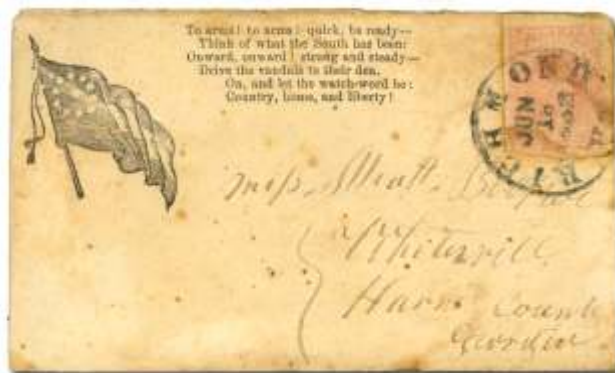 To arms! to arms! quick, be ready—
Think of what the South has been:
Onward, onward! strong and steady—
Drive the vandals to their den.
On, and let the watch-word be:
Country, home, and liberty!
RICHMOND
JUN
Miss Matt.
Whitesvill
Harris County
Georgia